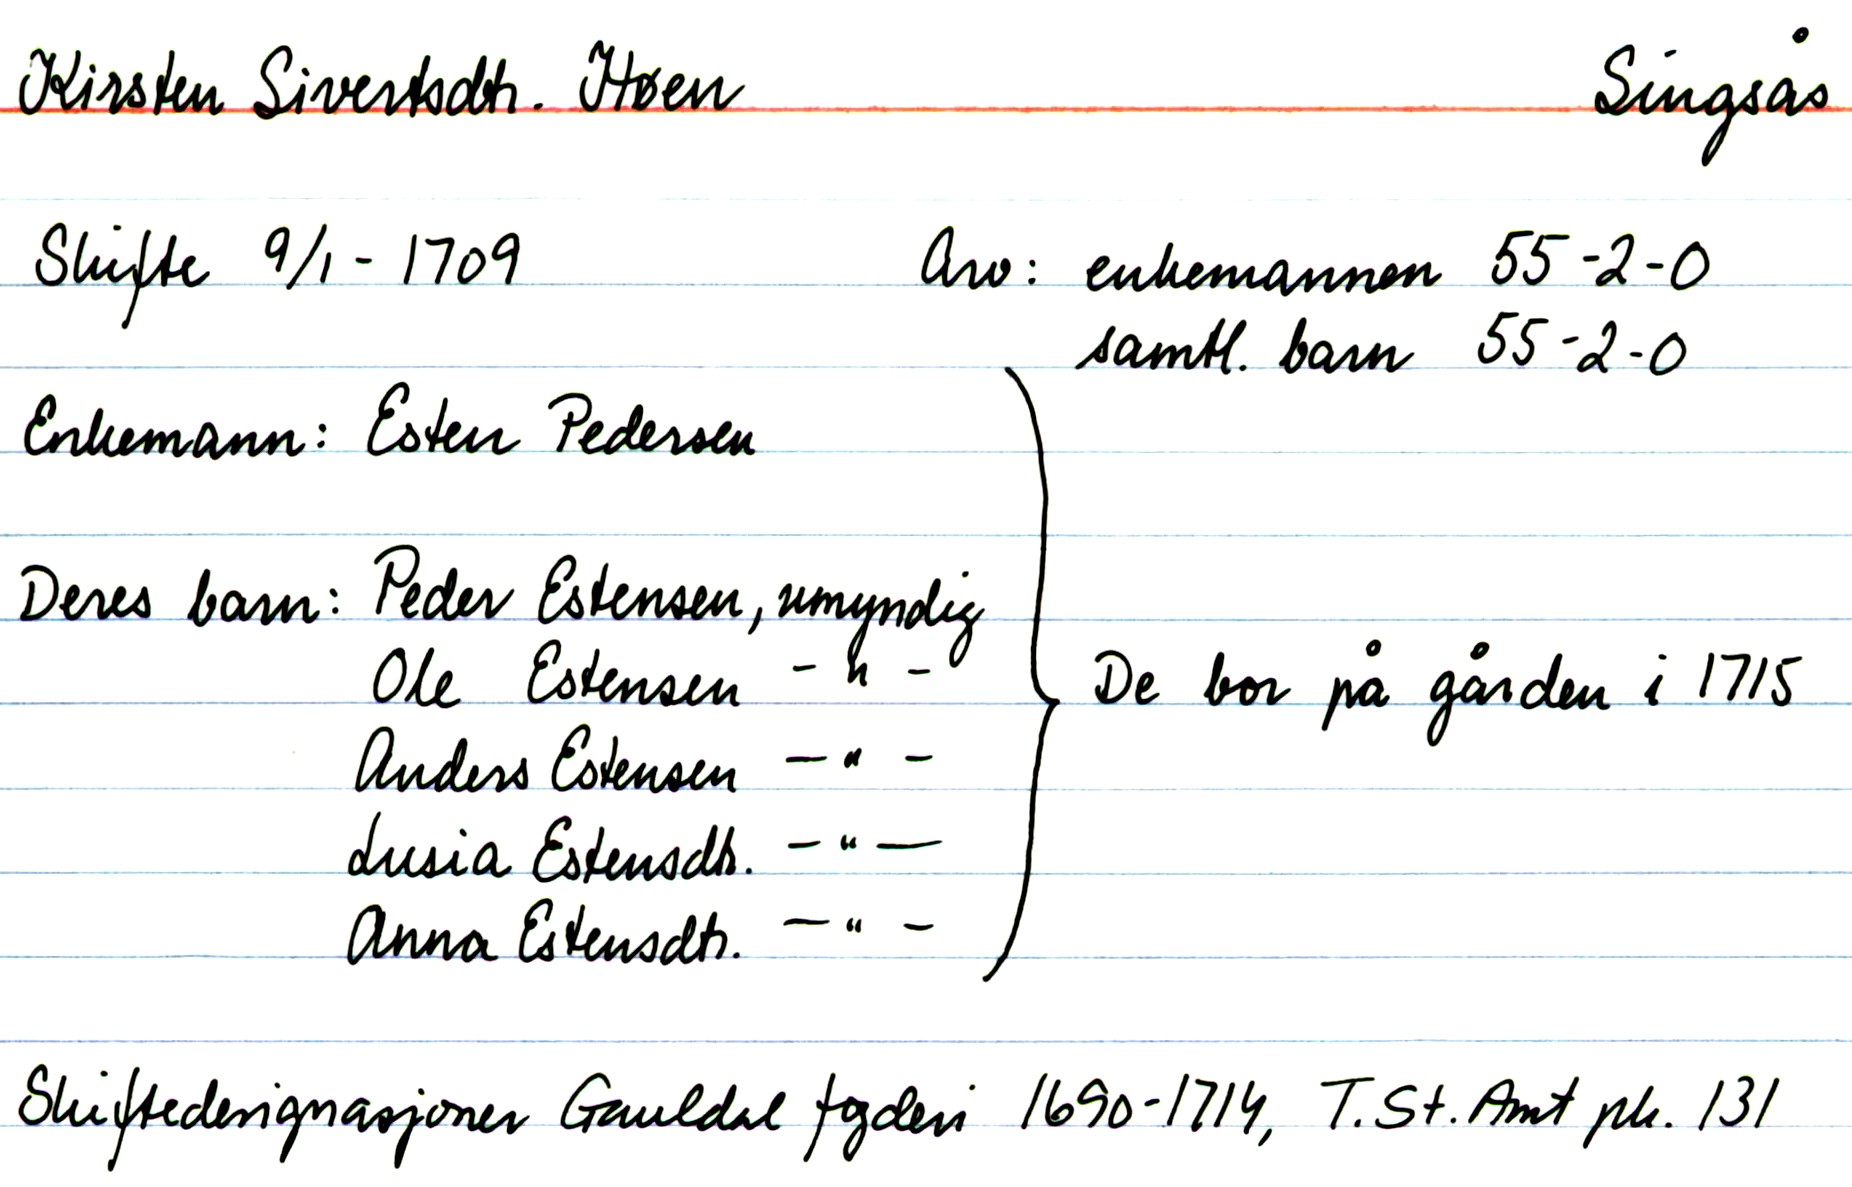 Kirsten Sivertsdtr. Høen Singsås
Skifte 9/1 - 1709 Arv: enkemannen 55-2-0
samtl. barn 55-2-0
Enkemann: Esten Pedersen
Deres barn: Peder Estensen, umyndig
Ole Estensen - " -
De bor på gården i 1715
Anders Estensen - " -
Lusia Estensdtr. - " -
Anna Estensdtr. - " -
Skiftedesignasjoner Gauldal fogderi 1690-1714, T.St. Amt pk. 131